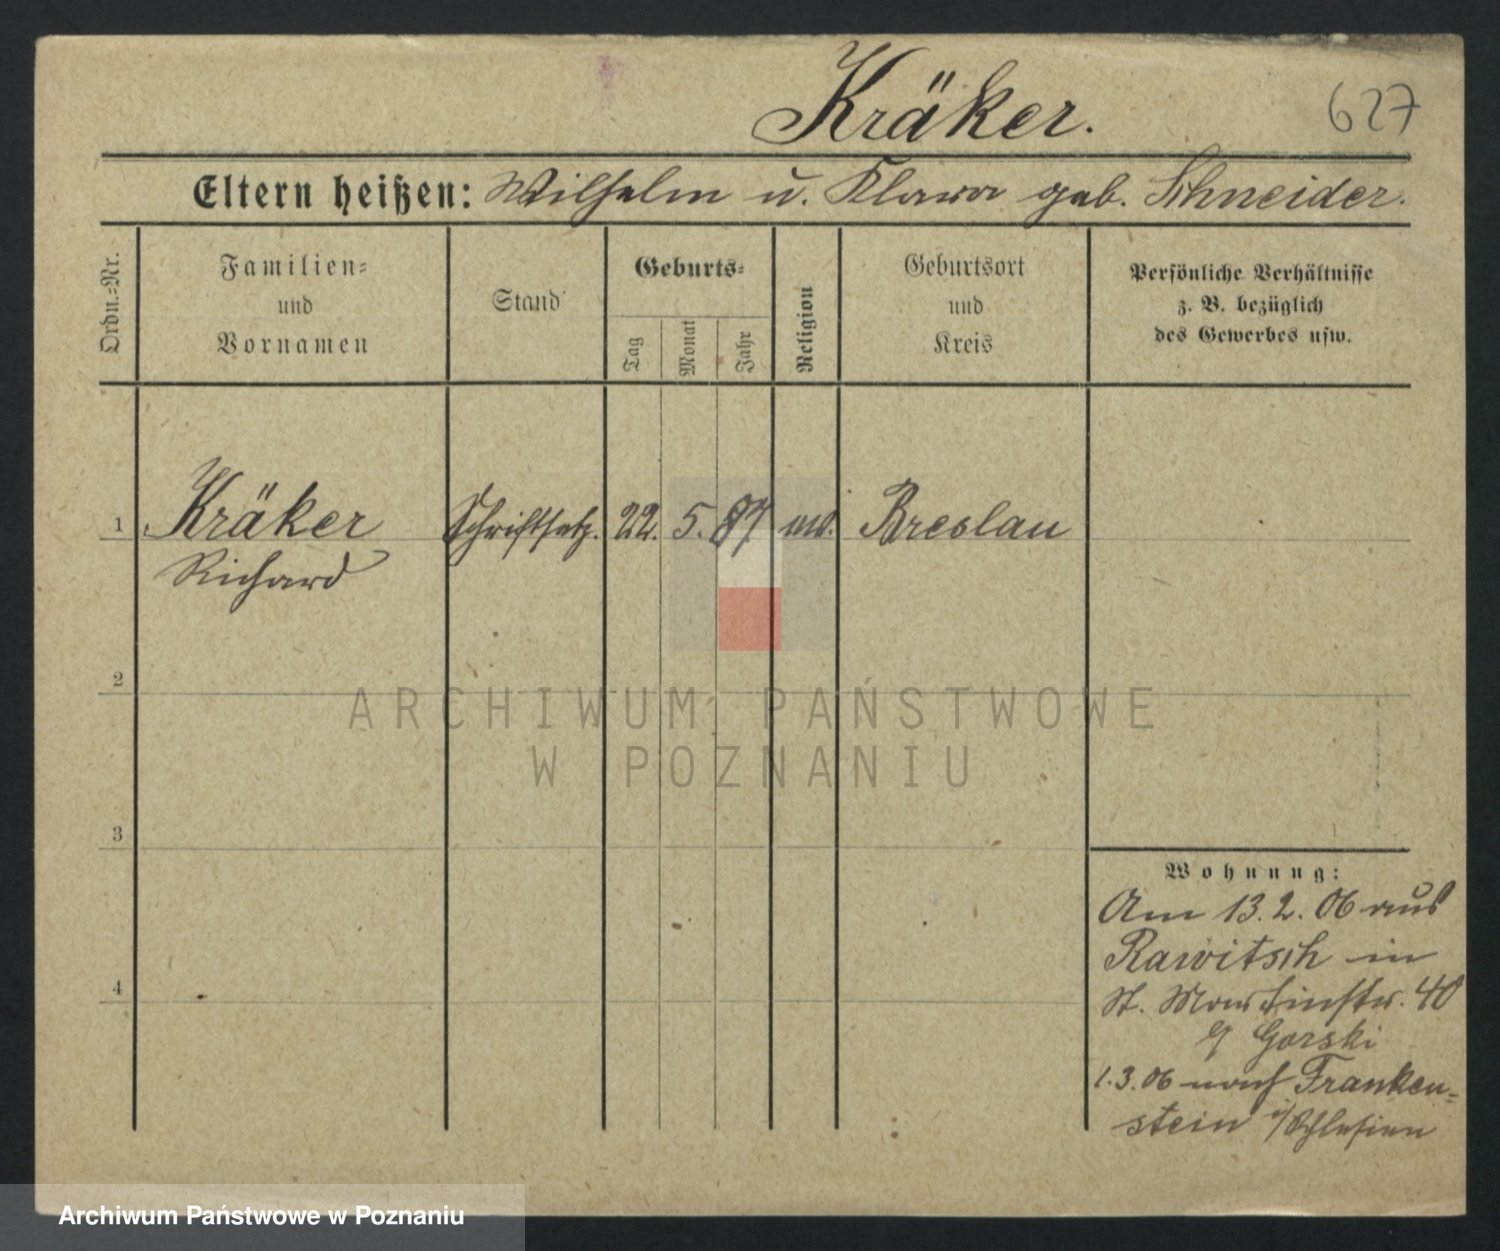 Kräker.
627
Eltern heißen: Wilhelm u. Klara geb. Schneider.
Ordn.-Nr.
Familien-
und
Vornamen
Stand
Geburts-
Tag
Monat
Jahr
Religion
Geburtsort
und
Kreis
Persönliche Verhältnisse
z. B. bezüglich
des Gewerbes usw.
1
Kräker
Richard
Schriftsetz.
22.
5.
87
Breslau
2
3
4
Wohnung:
Am 13.2.06 aus
Rawitsch in
St. Martinstr. 40
Gorski
1.3.06 nach Franken-
stein i/Schlesien
ARCHIWUM PAŃSTWOWE
W POZNANIU
Archiwum Państwowe w Poznaniu